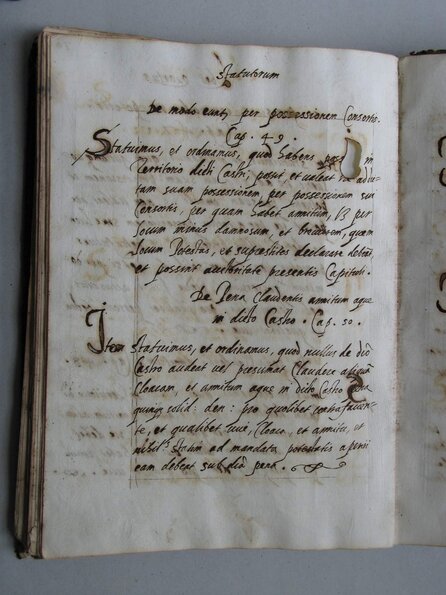 Statutorum
De modo eundi per possessionem Consortis.
Cap. 49.
Statuimus, et ordinamus, quod habens poss in
Territorio dicti Castri, possit, et valeat ire ad di
tam suam possessionem per possessionem sui
Consortis, per quam habet amitum, per
locum minus damnosum, et breviorem, quem
locum Potestas, et suprestites declarare debeat,
et possint auctoritate presentis Capituli.
De Pena Claudentis amitum aque
in dicto Castro. Cap. 50.
Item Statuimus, et ordinamus, quod nullus de dicto
Castro audeat vel presumat Claudere aliquā
Cloacam, et amitum aque in dicto Castro
quinq solid: den: pro quolibet contrafacien-
te, et qualibet vice, Cloaca, et amitu, et
nihil: statim ad mandata potestatis aperiri
eam debeat sub dicta pena.